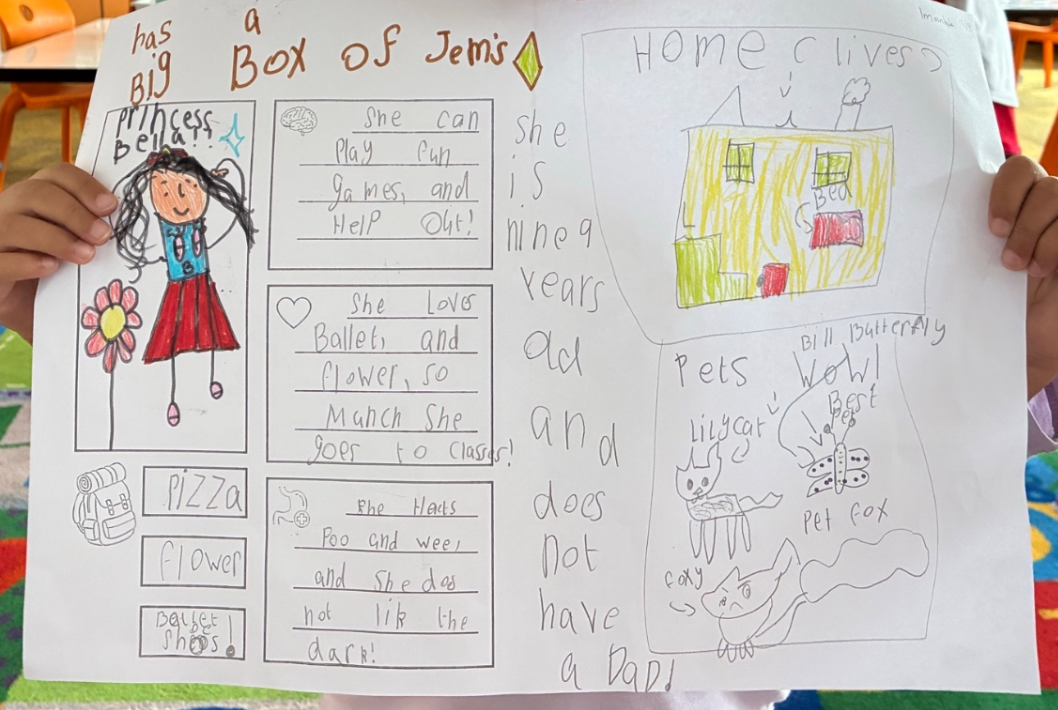 has a
Big Box of Jem's
Princess
Bella!!
B
She can
Play fun
games, and
Help Out!
She Loves
Ballet, and
flower, so
Manch She
goes to classes!
She Hats
Poo and wee,
and She das
not lik the
dark!
Pizza
flower
Ballet
Shoes!
she
is
nine 9
years
old
and
does
not
have
a Dad!
Home (lives)
Bed
Pets
Bill Butterfly
Wow!
Best
Pet
Lily cat
Pet fox
foxy